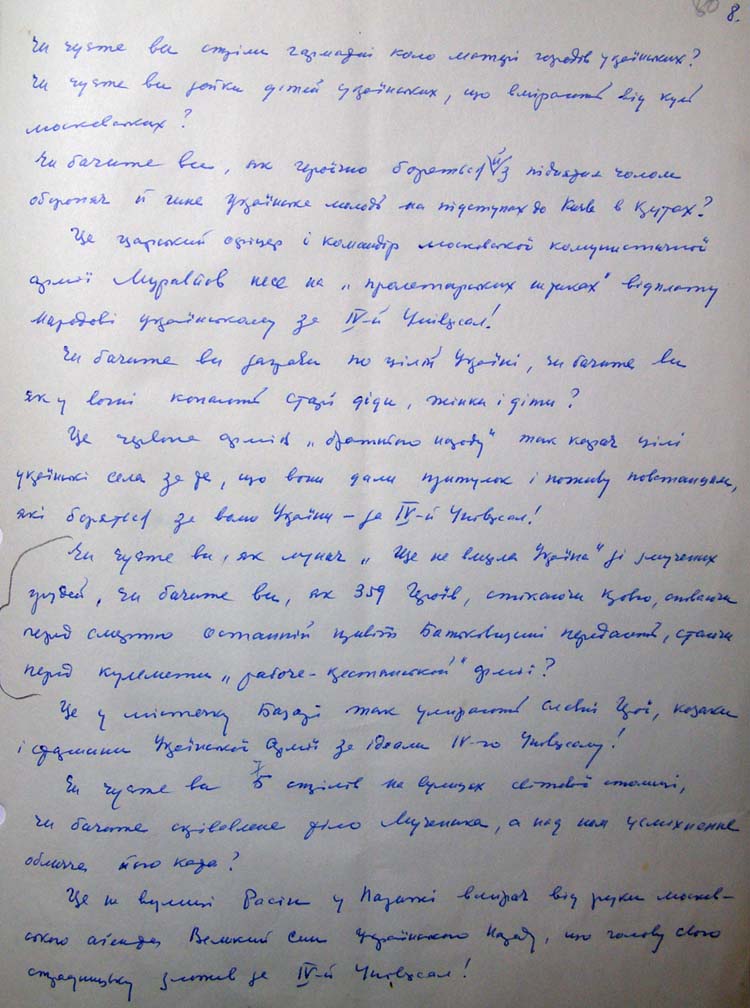 80 8.
Чи чуєте ви стріли гарматні коло матері городів українських?
Чи чуєте ви зойки дітей українських, що вмірають від куль
московських?
Чи бачите ви, як героїчно бореться й з піднятим чолом
обороняч й гине Українська молодь на підступах до Києва в Крутах?
Це царський офіцер і командір московської комуністичної
армії Муравйов несе на „пролетарських штиках" відплату
народові українському за IV-й Універсал!
Чи бачите ви заграви по цілій Україні, чи бачите ви
як у вогні конають старі діди, жінки і діти?
Це червона армія „братнього народу" так карач цілі
українські села за те, що вони дали притулок і поживу повстанцям,
які борються за волю України – за IV-й Універсал!
Чи чуєте ви, як лунач „Ще не вмерла Україна" зі змучених
грудей, чи бачите ви, як 359 Героїв, стікаючи кровю, співаючи
перед смертю останній привіт Батьківщині передають, стаючи
перед кулемети „рабоче-крестьянської" армії?
Це у містечку Базарі так умирають славні Герої, козаки
і старшини Української Армії за ідеали IV-го Універсалу!
Чи чуєте ви 7 стрілів на вулицях світової столиці,
чи бачите скрівавлене тіло Мученика, а над ним усміхнене
обличчя його ката?
Це на вулиці Расін у Парижі вмірач від руки москов-
ського агента Великий Син Українського Народу, що голову свою
страдницьку зложив за IV-й Універсал!